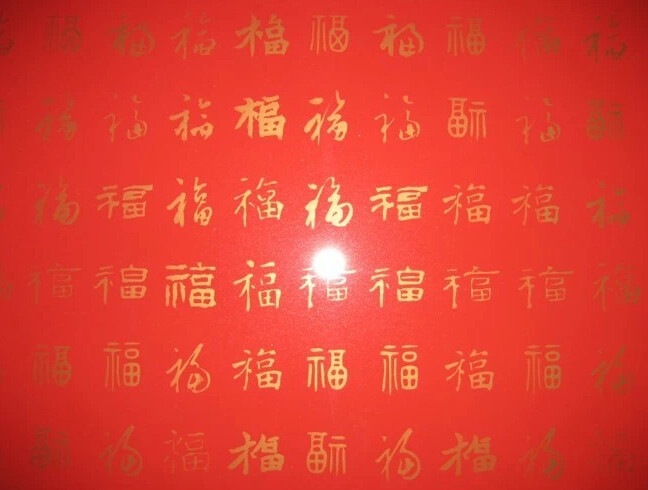 福福福福福福福福福
福福福福福福福福福
福福福福福福福福福
福福福福福福福福福
福福福福福福福福福
福福福福福福福福福